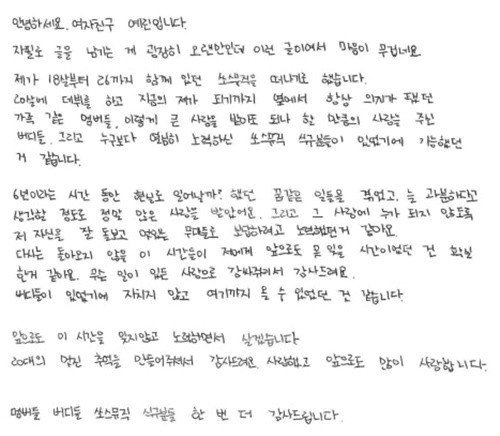 안녕하세요. 여자친구 예린입니다.
자필로 글을 남기는 게 굉장히 오랜만인데 이런 글이여서 마음이 무겁네요
제가 18살부터 26까지 함께 있던 쏘스뮤직을 떠나기로 했습니다.
20살에 데뷔를 하고 지금의 제가 되기까지 옆에서 항상 의지가 됐던
가족 같은 멤버들, 이렇게 큰 사랑을 받아도 되나 한 만큼의 사랑을 주신
버디들, 그리고 누구보다 열심히 노력하신 쏘스뮤직 식구분들이 있었기에 가능했던
거 같습니다.
6년이라는 시간 동안 현실로 일어날까? 했던 꿈같은 일들을 겪었고, 늘 과분하다고
생각할 정도로 정말 많은 사랑을 받았어요. 그리고 그 사랑에 누가 되지 않도록
저 자신을 잘 돌보고 멋있는 무대들로 보답하려고 노력했던거 같아요.
다시는 돌아오지 않을 이 시간들이 저에게 앞으로도 못 잊을 시간이었던 건 확실
한거 같아요. 무슨 일이 있든 사랑으로 감싸줘서 감사드려요.
버디들이 있었기에 지치지 않고 여기까지 올 수 있었던 건 같습니다.
앞으로도 이 시간을 잊지않고 노력하면서 살겠습니다
20대의 멋진 추억을 만들어주셔서 감사드려요. 사랑했고 앞으로도 많이 사랑합니다.
멤버들 버디들 쏘스뮤직 식구분들 한 번 더 감사드립니다.